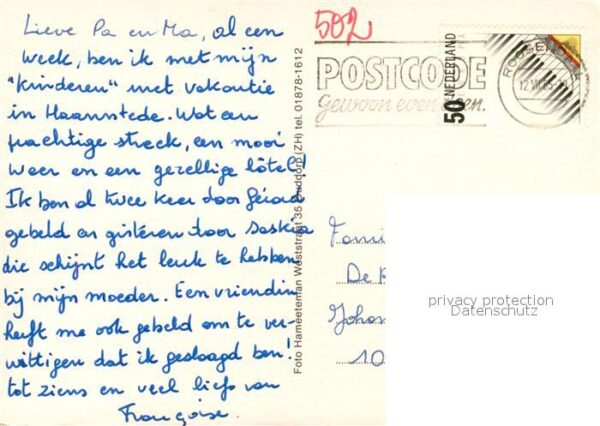 Lieve Pa en Ma, al een
week, ben ik met mijn
"kinderen" met vakantie
in Haamstede. Wat een
prachtige streek, een mooi
weer en een gezellige hôtel!
Ik ben al twee keer door Gérard
gebeld en gisteren door Saskia
die schijnt het leuk te hebben
bij mijn moeder. Een vriendin
heeft me ook gebeld om te ver-
wittigen dat ik geslaagd ben!
tot ziens en veel liefs van
Françoise.
Foto Hameeteman Weststraat 35 Ouddorp (ZH) tel. 01878-1612
502
POSTCODE
Gewoon even
50 NEDERLAND
12 VII
Fami
De
Johan
10
privacy protection
Datenschutz